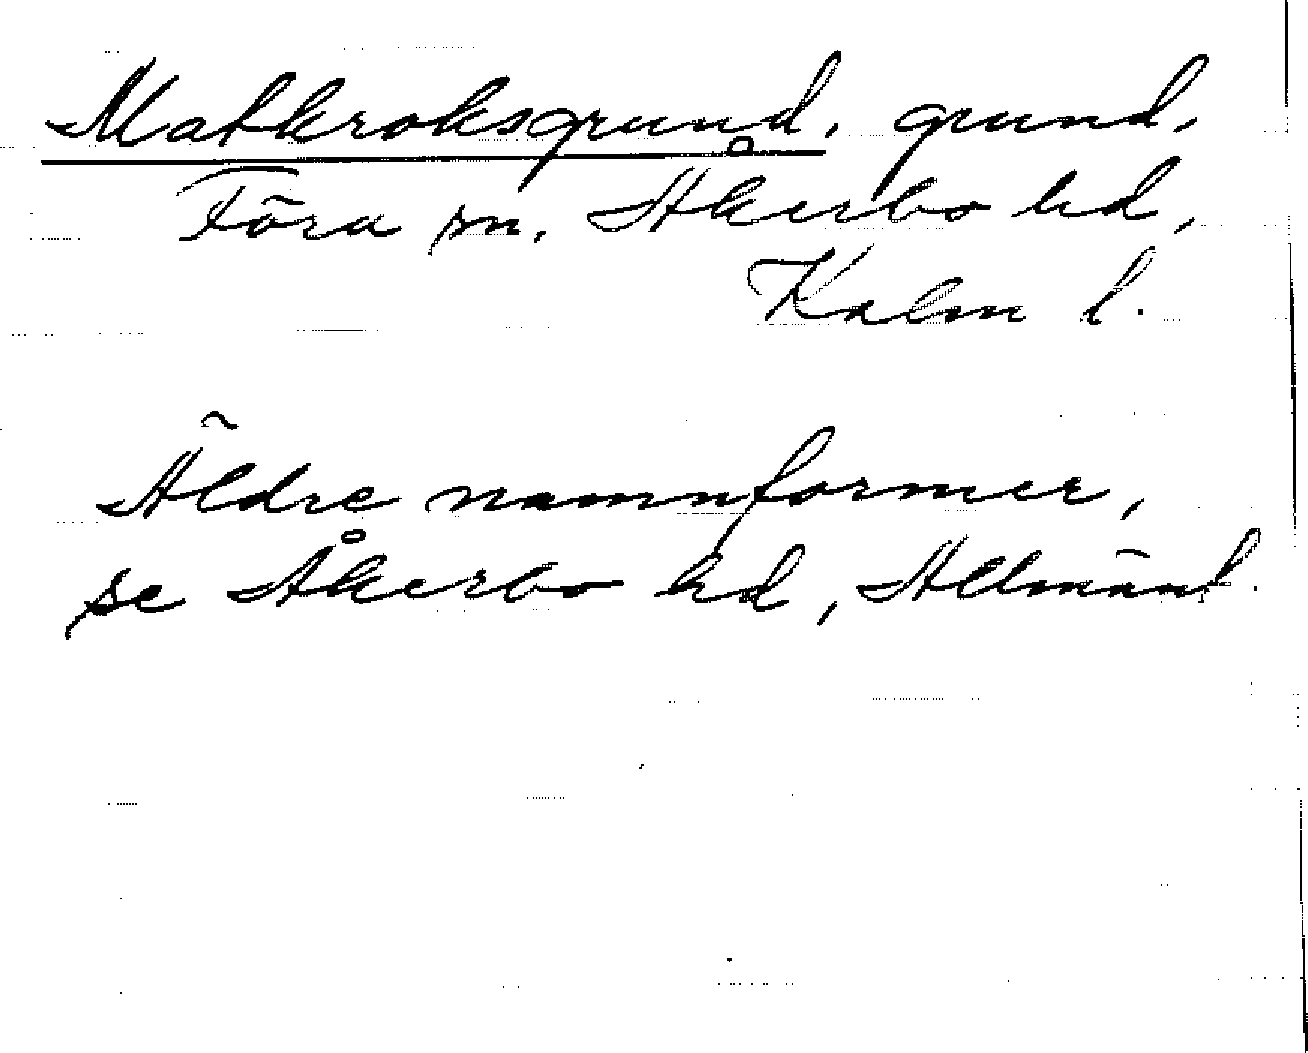 Matkroksgrund, grund,
Föra sn, Åkerbo hd,
Kalm l.
Äldre namnformer,
se Åkerbo hd, Allmänt.